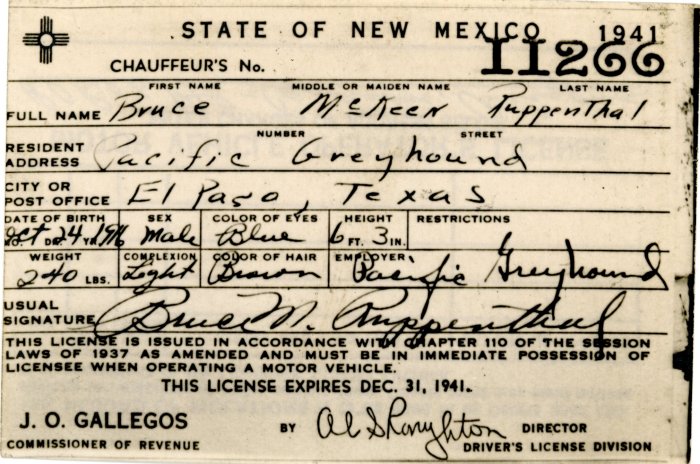 STATE OF NEW MEXICO 1941
CHAUFFEUR'S No. 11266
FIRST NAME MIDDLE OR MAIDEN NAME LAST NAME
FULL NAME Bruce McKeen Ruppenthal
NUMBER STREET
RESIDENT ADDRESS Pacific Greyhound
CITY OR POST OFFICE El Paso, Texas
DATE OF BIRTH SEX COLOR OF EYES HEIGHT RESTRICTIONS
Oct 24 1916 Male Blue 6 FT. 3 IN.
WEIGHT COMPLEXION COLOR OF HAIR EMPLOYER
240 LBS. Light Brown Pacific Greyhound
USUAL SIGNATURE Bruce M. Ruppenthal
THIS LICENSE IS ISSUED IN ACCORDANCE WITH CHAPTER 110 OF THE SESSION
LAWS OF 1937 AS AMENDED AND MUST BE IN IMMEDIATE POSSESSION OF
LICENSEE WHEN OPERATING A MOTOR VEHICLE.
THIS LICENSE EXPIRES DEC. 31, 1941.
J. O. GALLEGOS BY DIRECTOR
COMMISSIONER OF REVENUE DRIVER'S LICENSE DIVISION